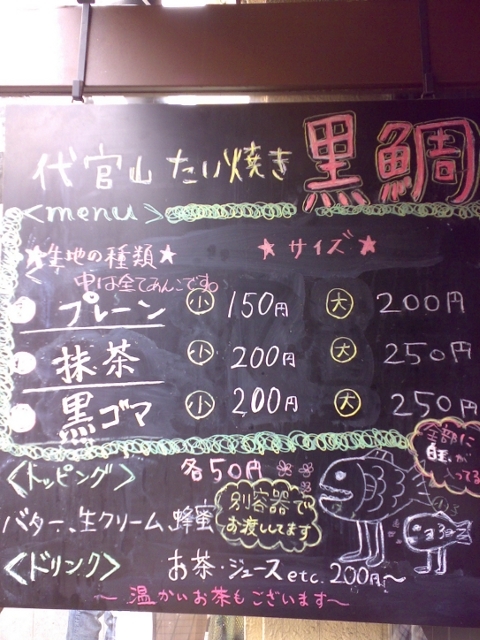 代官山 たい焼き 黒鯛
<menu>
★生地の種類★ ★サイズ★
中は全てあんこです。
プレーン 小 150円 大 200円
抹茶 小 200円 大 250円
黒ゴマ 小 200円 大 250円
全部に
白玉が
入ってる
<トッピング> 各50円
バター、生クリーム、蜂蜜
別容器で
お渡ししてます
<ドリンク> お茶・ジュースetc. 200円～
～温かいお茶もございます～